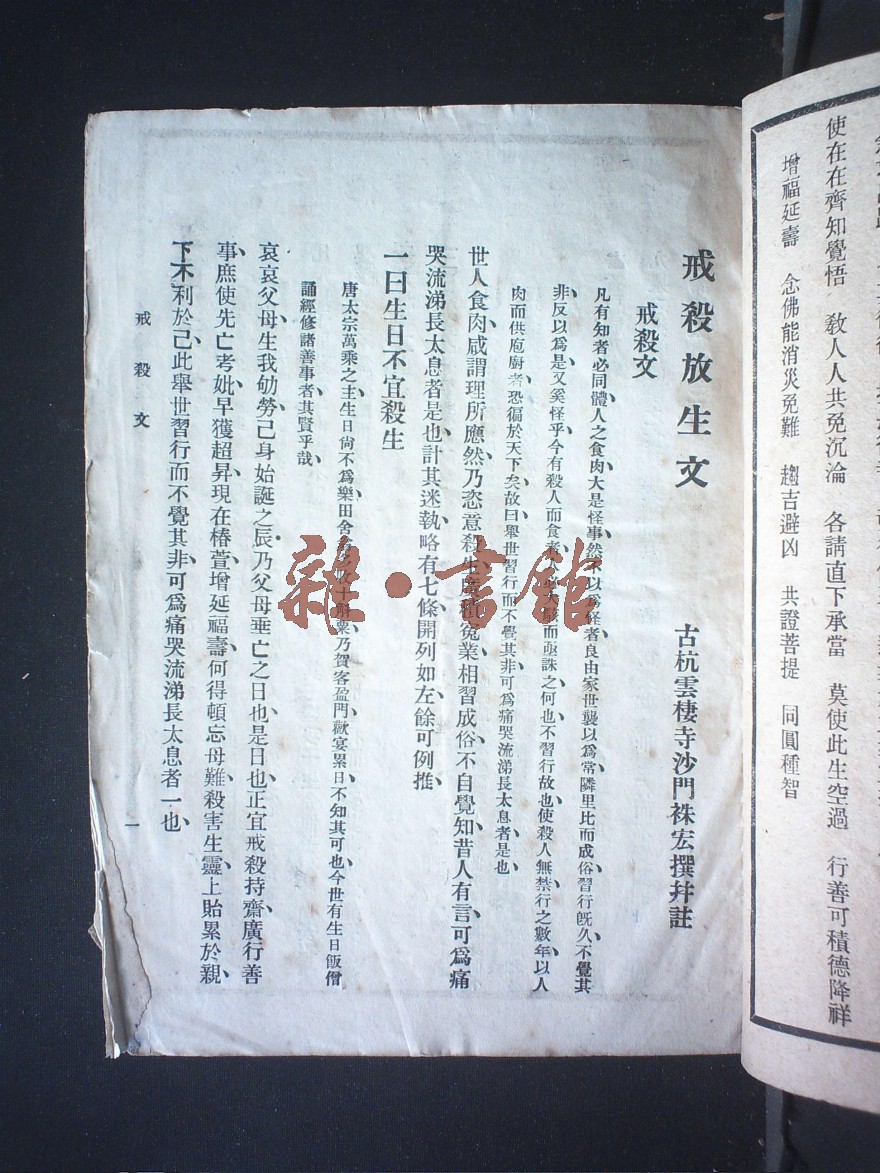 使在在齊知覺悟 敎人人共免沉淪 各請直下承當 莫使此生空過 行善可積德降祥
增福延壽 念佛能消災免難 趨吉避凶 共證菩提 同圓種智
戒殺放生文
古杭雲棲寺沙門袾宏撰幷註
戒殺文
凡有知者必同體人之食肉大是怪事然不以爲怪者良由家世襲以爲常隣里比而成俗習行旣久、不覺其
非、反以爲是、又奚怪乎、今有殺人而食者、人必大駭而亟誅之、何也、不習行故也、使殺人無禁、行之數年、以人
肉而供庖廚者、恐徧於天下矣、故曰舉世習行而不覺其非、可爲痛哭流涕長太息者是也、
世人食肉、咸謂理所應然、乃恣意殺生、廣積冤業、相習成俗、不自覺知、昔人有言、可爲痛
哭流涕長太息者是也、計其迷執、略有七條、開列如左、餘可例推、
一曰生日不宜殺生
唐太宗萬乘之主、生日尙不爲樂、田舍翁多收十斛粟、乃賀客盈門、歡宴累日、不知其可也、今世有生日飯僧
誦經、修諸善事者、其賢乎哉、
哀哀父母、生我劬勞、己身始誕之辰、乃父母垂亡之日也、是日也、正宜戒殺持齋、廣行善
事、庶使先亡考妣、早獲超昇、現在椿萱、增延福壽、何得頓忘母難、殺害生靈、上貽累於親、
下不利於己、此舉世習行而不覺其非、可爲痛哭流涕長太息者一也、
戒殺文
一
雜·書館